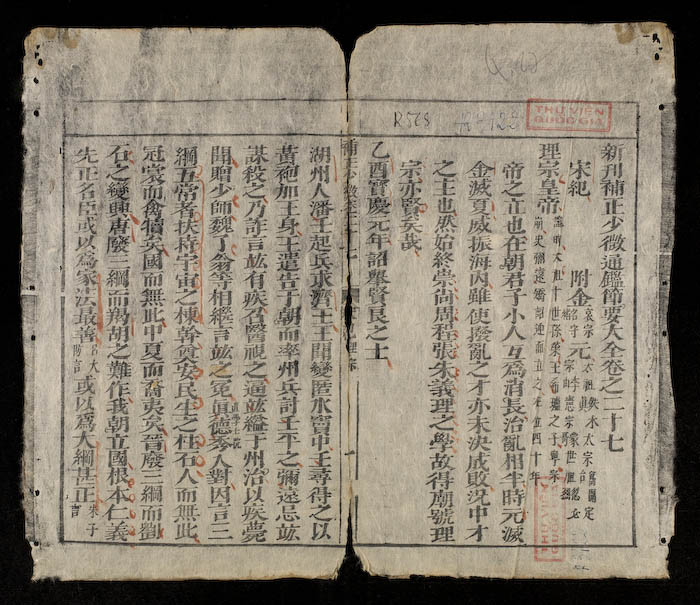 R.568
THƯ VIỆN
QUỐC GIA
新刊補正少微通鑑節要大全卷之二十七
宋紀
附金
元
理宗皇帝
帝之立也在朝君子小人互為消長治亂相半時元滅
金滅夏威振海內雖使撥亂之才亦未決成敗況中才
之主也然始終崇尚周程張朱義理之學故得廟號理
宗亦賢矣哉
乙酉寶慶元年詔舉賢良之士
湖州人潘壬起兵求濟王王聞變匿水竇中壬尋得之以
黃袍加王身王遣告于朝而率州兵討壬平之彌遠忌竑
謀殺之乃詐言竑有疾召醫視之逼竑縊于州治以疾薨
聞贈少師魏了翁等相繼言竑之冤真德秀入對因言三
綱五常者扶持宇宙之棟幹奠安民生之柱石人而無此
冠裳而禽犢矣國而無此中夏而裔夷矣晉廢三綱而劉
石之變興唐廢三綱而羯胡之難作我朝立國根本仁義
先正名臣或以為家法最善或以為大綱甚正